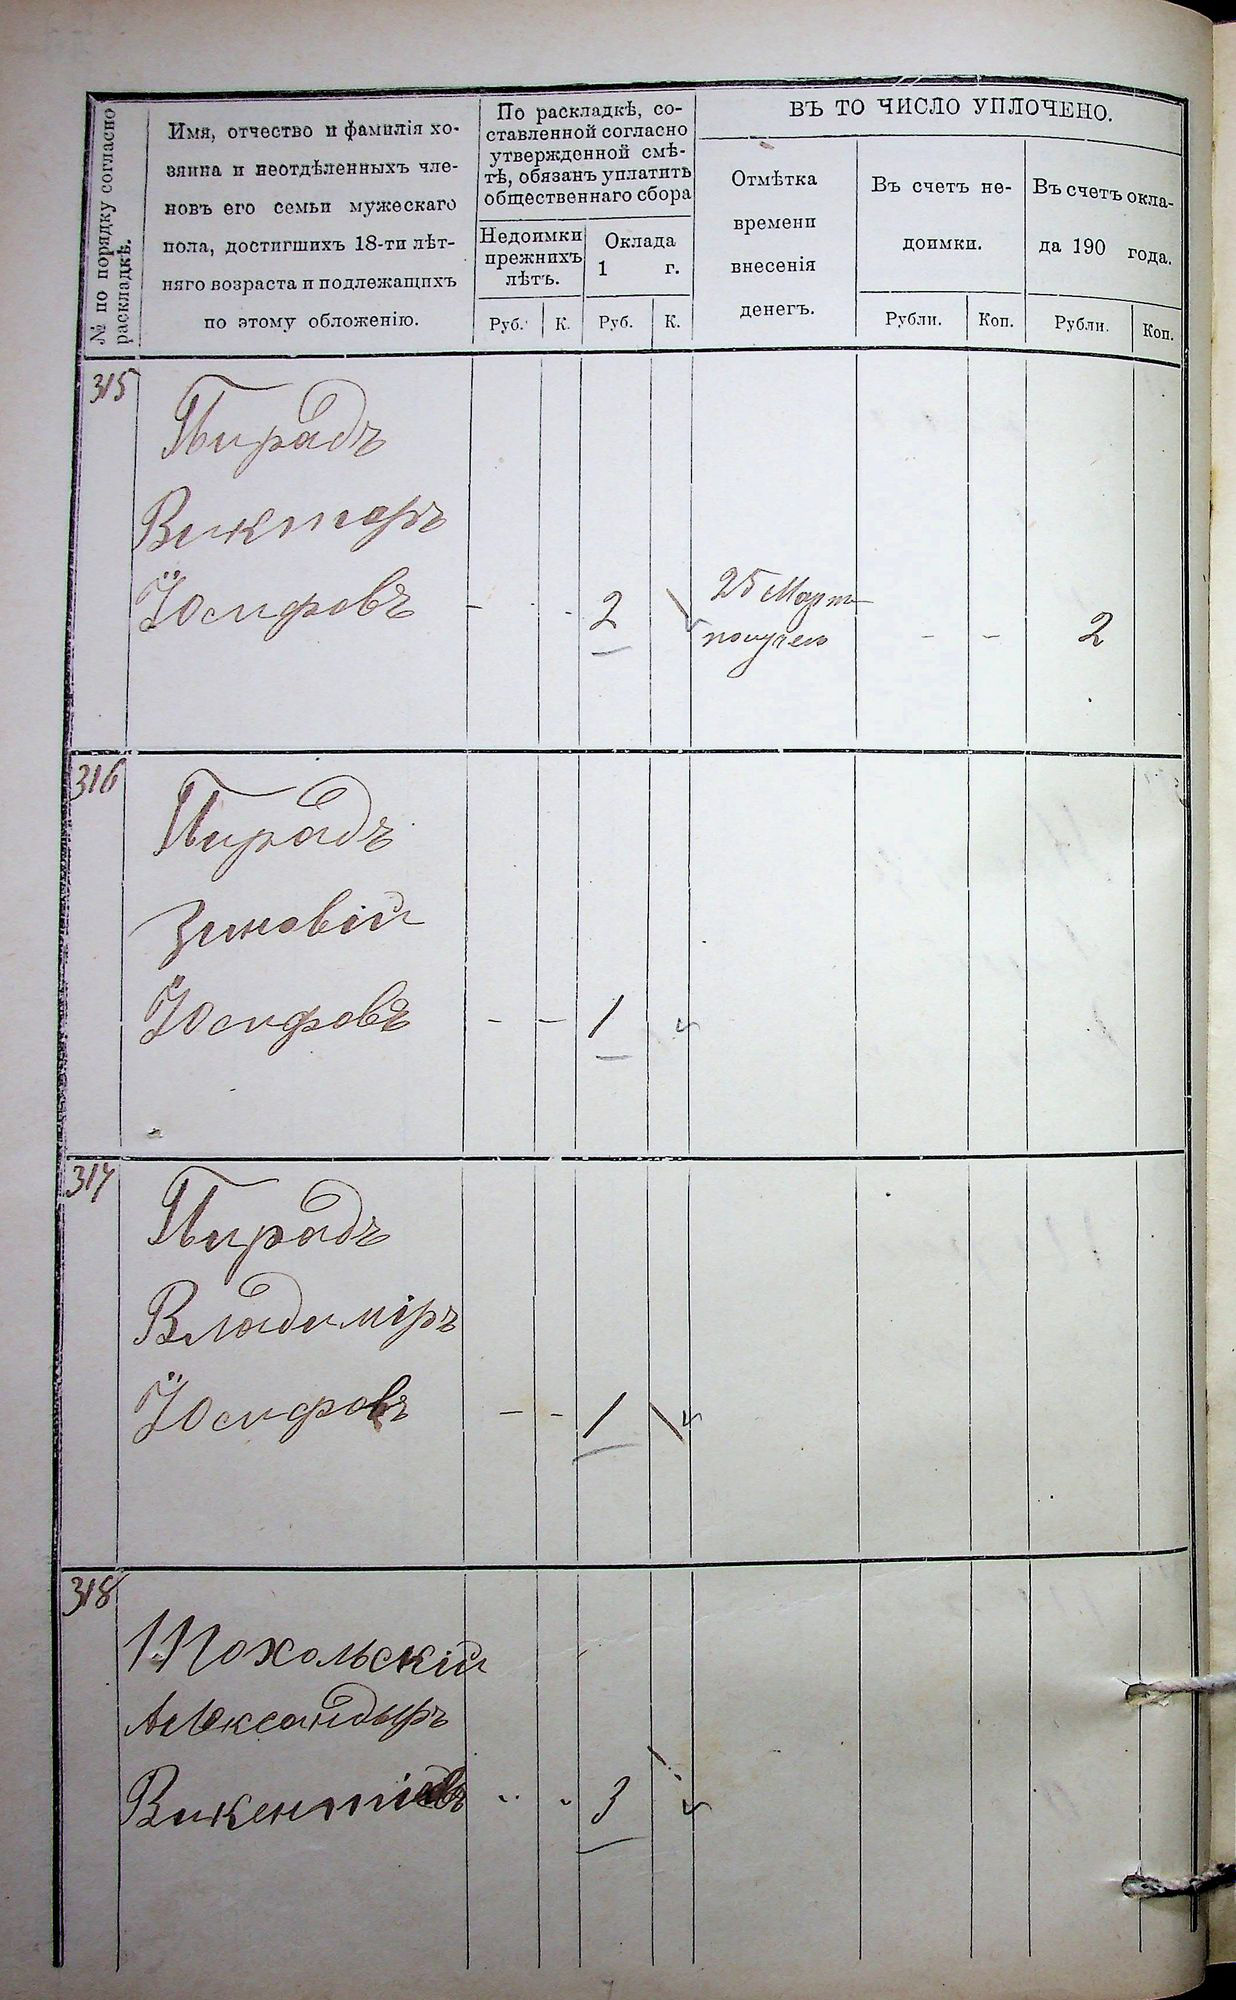 № по порядку согласно
раскладкѣ.
Имя, отчество и фамилія хо-
зяина и неотдѣленныхъ чле-
новъ его семьи мужескаго
пола, достигшихъ 18-ти лѣт-
няго возраста и подлежащихъ
по этому обложенію.
По раскладкѣ, со-
ставленной согласно
утвержденной смѣ-
тѣ, обязанъ уплатить
общественнаго сбора
Недоимки
прежнихъ
лѣтъ.
Оклада
1 г.
Руб. К. Руб. К.
ВЪ ТО ЧИСЛО УПЛОЧЕНО.
Отмѣтка
времени
внесенія
денегъ.
Въ счетъ не-
доимки.
Въ счетъ окла-
да 190 года.
Рубли. Коп. Рубли. Коп.
315
Пирадъ
Викторъ
Юсифовъ - - 2
25 Март
получено - - 2
316
Пирадъ
Зиновій
Юсифовъ - - 1
317
Пирадъ
Владиміръ
Юсифовъ - - 1
318
Похольскій
Александыръ
Викентіевъ 3